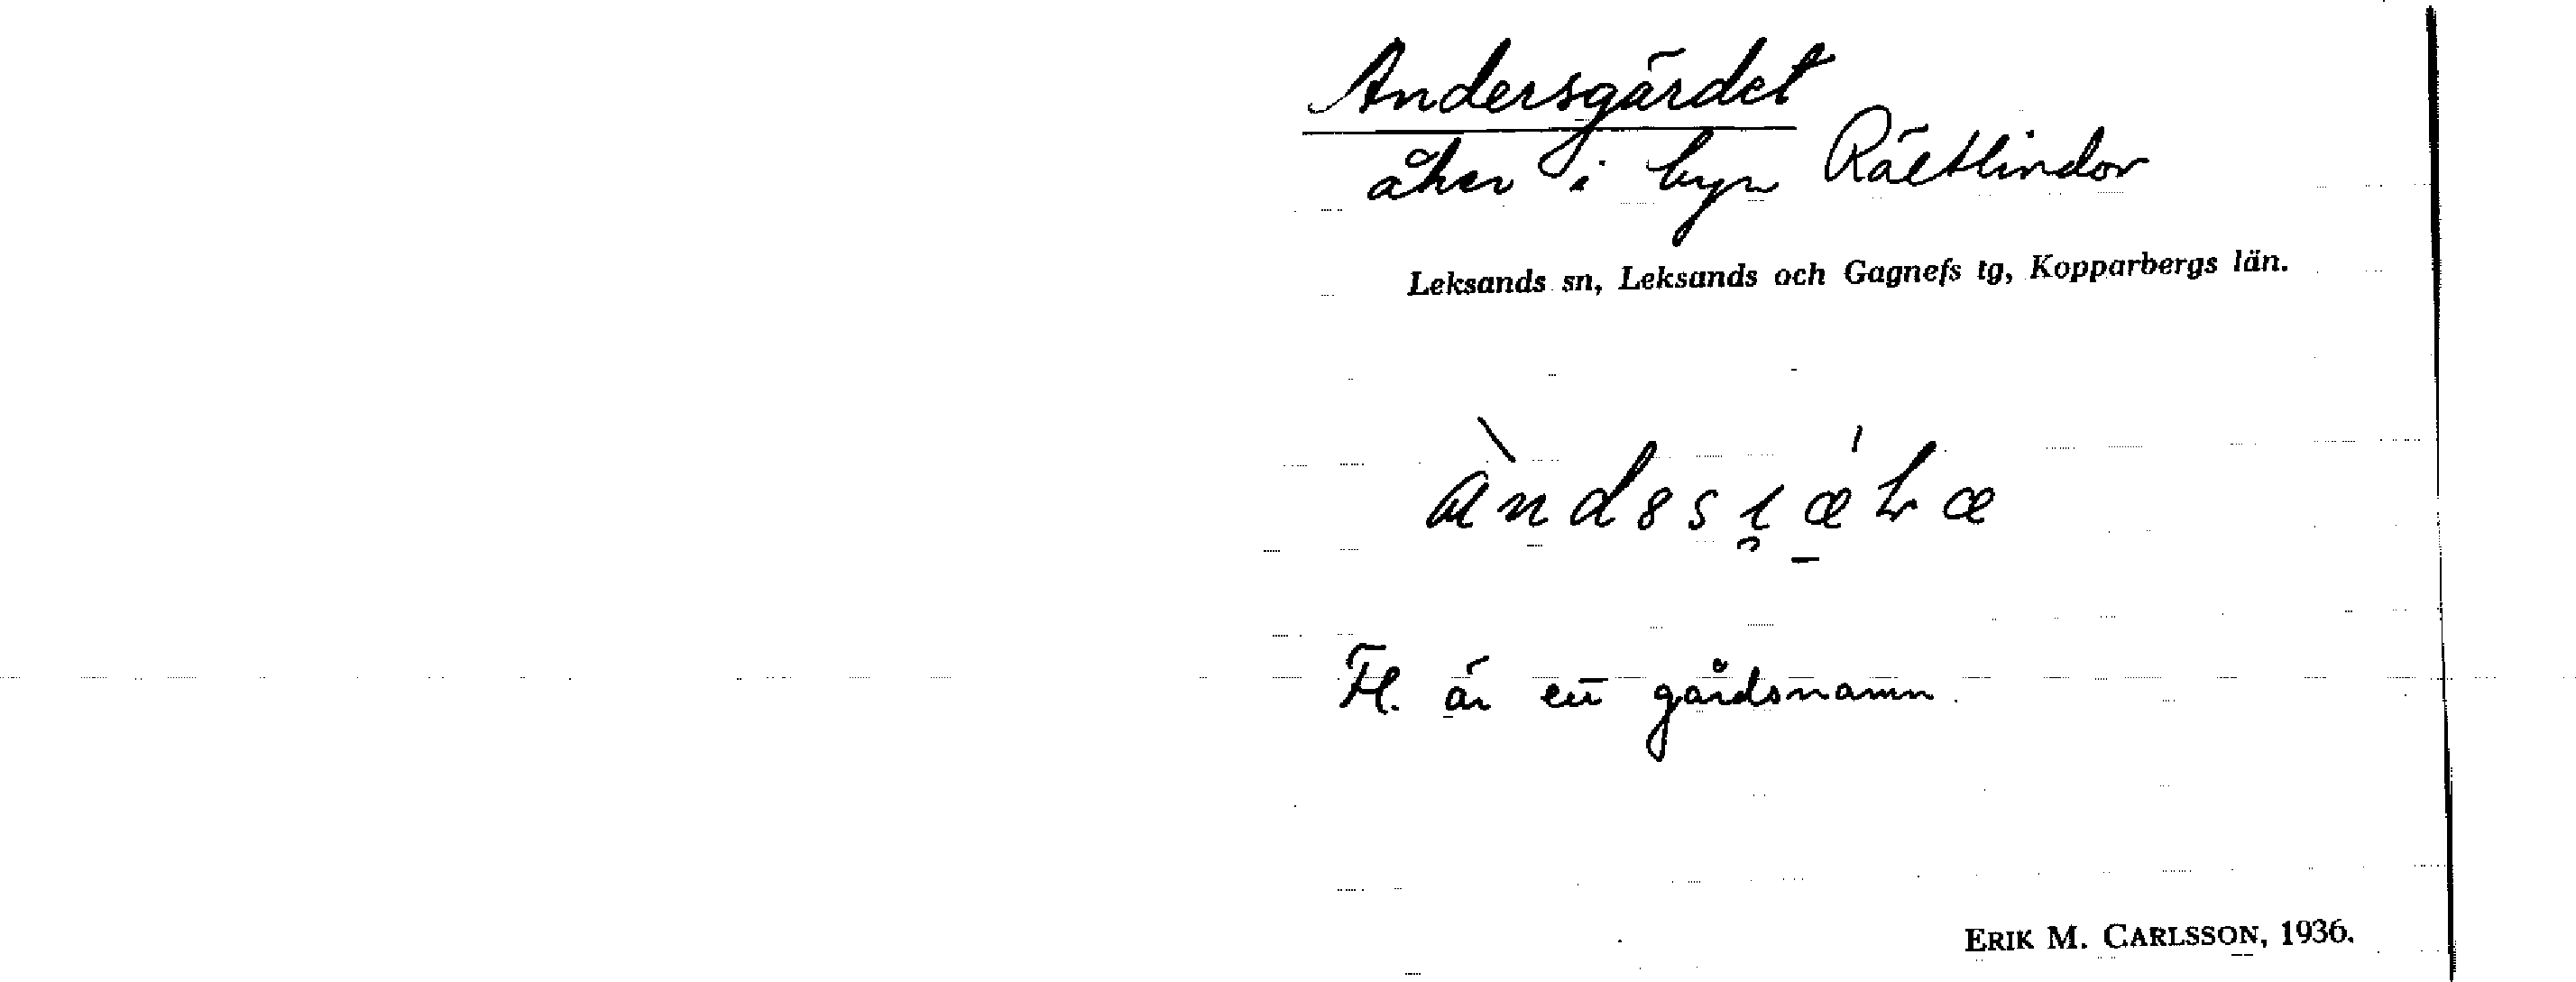 Andersgärdet
åker i byn Rältlindor
Leksands sn, Leksands och Gagnefs tg, Kopparbergs län.
Fl. är ett gårdsnamn.
ERIK M. CARLSSON, 1936.